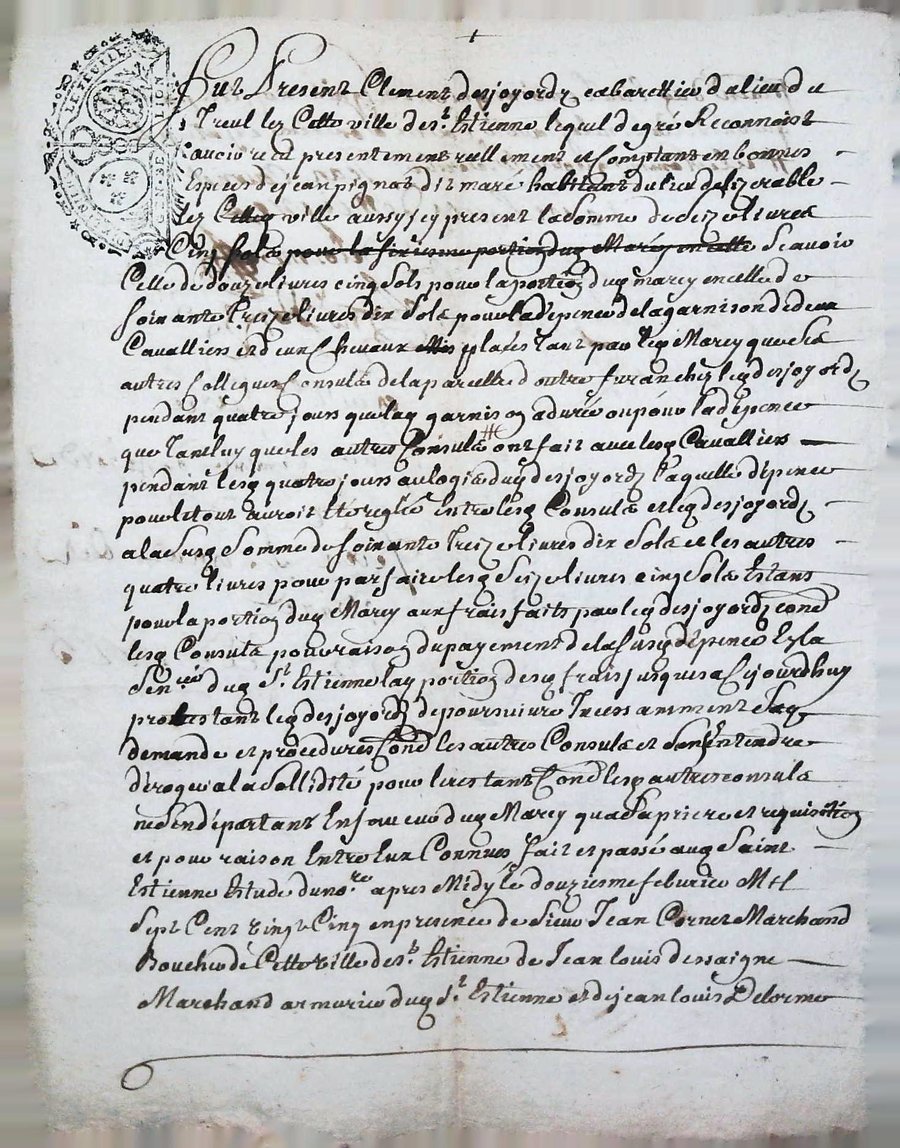 Fut Present Clement desjoyordz cabarettier du lieu du
Treul lez Cette ville de st. Estienne lequel de gré Reconnoist
avoir receu presentement reellement et Comptant en bonnes
Especes de jean pignat dit maré habitant du lieu de lizerable
lez Cette ville aussy icy present la somme de seize livres
Cinq sols pour la sixiesme portion dud Marcy en celle Scavoir
Celle de douze livres cinq sols pour la portion dud marcy en celle de
soixante Treize livres dix sols pour la depence de la garnison de deux
Cavalliers et deux Chevaux placés tant par led Marcy que ses
autres Collegues Consuls de la parcelle d'outre furan chez led desjoyordz
pendant quatre jours que lad garnison a durée ou pour la depence
que Tant luy que les autres Consuls ont fait avec lesd Cavalliers
pendant lesd quatre jours au logis dud desjoyordz Laquelle depence
pour le tout auroit été reglée Entre lesd Consuls et led desjoyordz
a la susd Somme de soixante Treize livres dix sols et les autres
quatre livres pour parfaire lesd Seize livres cinq sols Estant
pour la portion dud Marcy aux frais faits par led desjoyordz Cond
lesd Consuls pour raison du payement de la susd depence En la
dud St. Estienne lad portion desd frais jusques a Cejourdhuy
protestant led desjoyordz de poursuivre Incessamment Sad
demande et procedures Cond les autres Consuls et sans Entendre
deroger a la Sollidité pour le restant Cond lesd autres consuls
ne sen départant En faveur dud Marcy qua Sa priere et requisition
et pour raison Entre Eux Connues fait et passé aud Saint
Estienne Estude du nore apres Midy le douziesme febvrier Mil
Sept Cent vingt Cinq en presence de Sieur Jean Cornet Marchand
Boucher de Cette ville de st. Estienne de Jean louis dessaigne
Marchand armurier dud St Estienne et de jean louis Delorme